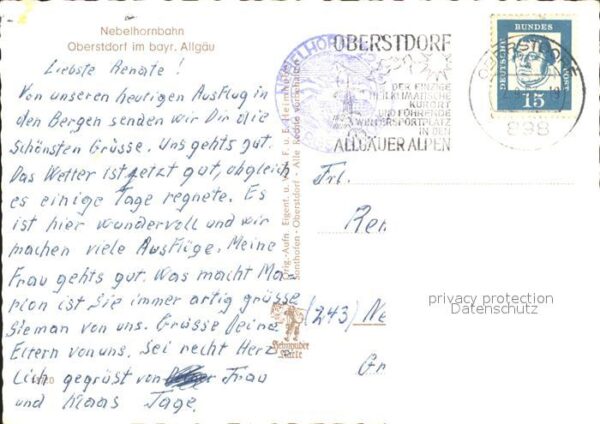 Nebelhornbahn
Oberstdorf im bayr. Allgäu
Liebste Renate!
Von unseren heutigen Ausflug in
den Bergen senden wir Dir die
schönsten Grüsse. Uns gehts gut.
Das Wetter ist jetzt gut, obgleich
es einige Tage regnete. Es
ist hier wundervoll und wir
machen viele Ausflüge. Meine
Frau gehts gut. Was macht Ma-
rion ist Sie immer artig grüsse
Sieman von uns. Grüsse Deine
Eltern von uns. Sei recht Herz
lich gegrüst von Frau
und Klaas Tage.
OBERSTDORF
DER EINZIGE
KLIMATISCHE
KURORT
UND FÜHRENDE
WINTERSPORTPLATZ
IN DEN
ALLGÄUER ALPEN
OBERSTDORF
898
DEUTSCHE BUNDESPOST
15
NEBELHORN
Orig.-Aufn. Eigent. u. Verl. F. u. E. Heimhuber
Sonthofen - Oberstdorf - Alle Rechte vorbehalten
Heimhuber
Karte
Frl.
Ren
(243) Ne
Gr
privacy protection
Datenschutz